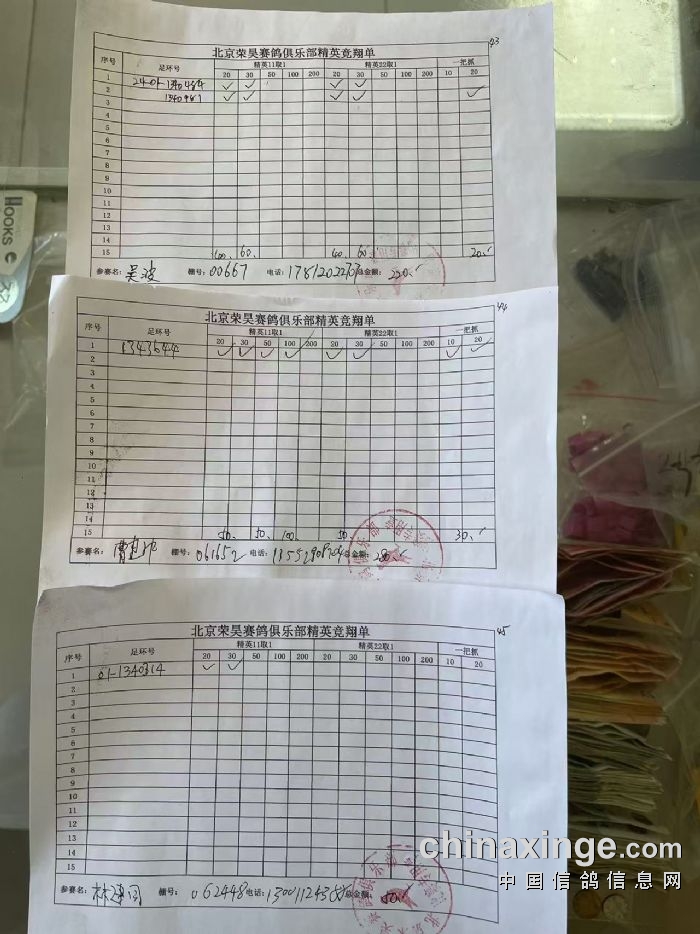 43
北京荣昊赛鸽俱乐部精英竞翔单
序号 足环号 精英11取1 精英22取1 一把抓
20 30 50 100 200 20 30 50 100 200 10 20
1 24-01-1340484 ✓ ✓ ✓ ✓
2 ✓ ✓ ✓ ✓ ✓
3
4
5
6
7
8
9
10
11
12
13
14
15 60. 60. 20.
参赛名: 吴波 棚号: 00667 电话: 总金额: 220.
44
北京荣昊赛鸽俱乐部精英竞翔单
序号 足环号 精英11取1 精英22取1 一把抓
20 30 50 100 200 20 30 50 100 200 10 20
1 1343644 ✓ ✓ ✓ ✓ ✓ ✓ ✓ ✓
2
3
4
5
6
7
8
9
10
11
12
13
14
15 50. 50. 100. 50. 30.
参赛名: 棚号: 061652 电话: 总金额: 280.
45
北京荣昊赛鸽俱乐部精英竞翔单
序号 足环号 精英11取1 精英22取1 一把抓
20 30 50 100 200 20 30 50 100 200 10 20
1 01-1340314 ✓ ✓
2
3
4
5
6
7
8
9
10
11
12
13
14
15
参赛名: 棚号: 062448 电话: 总金额: 50.
HOOKS
chinaxinge.com
中国信鸽信息网